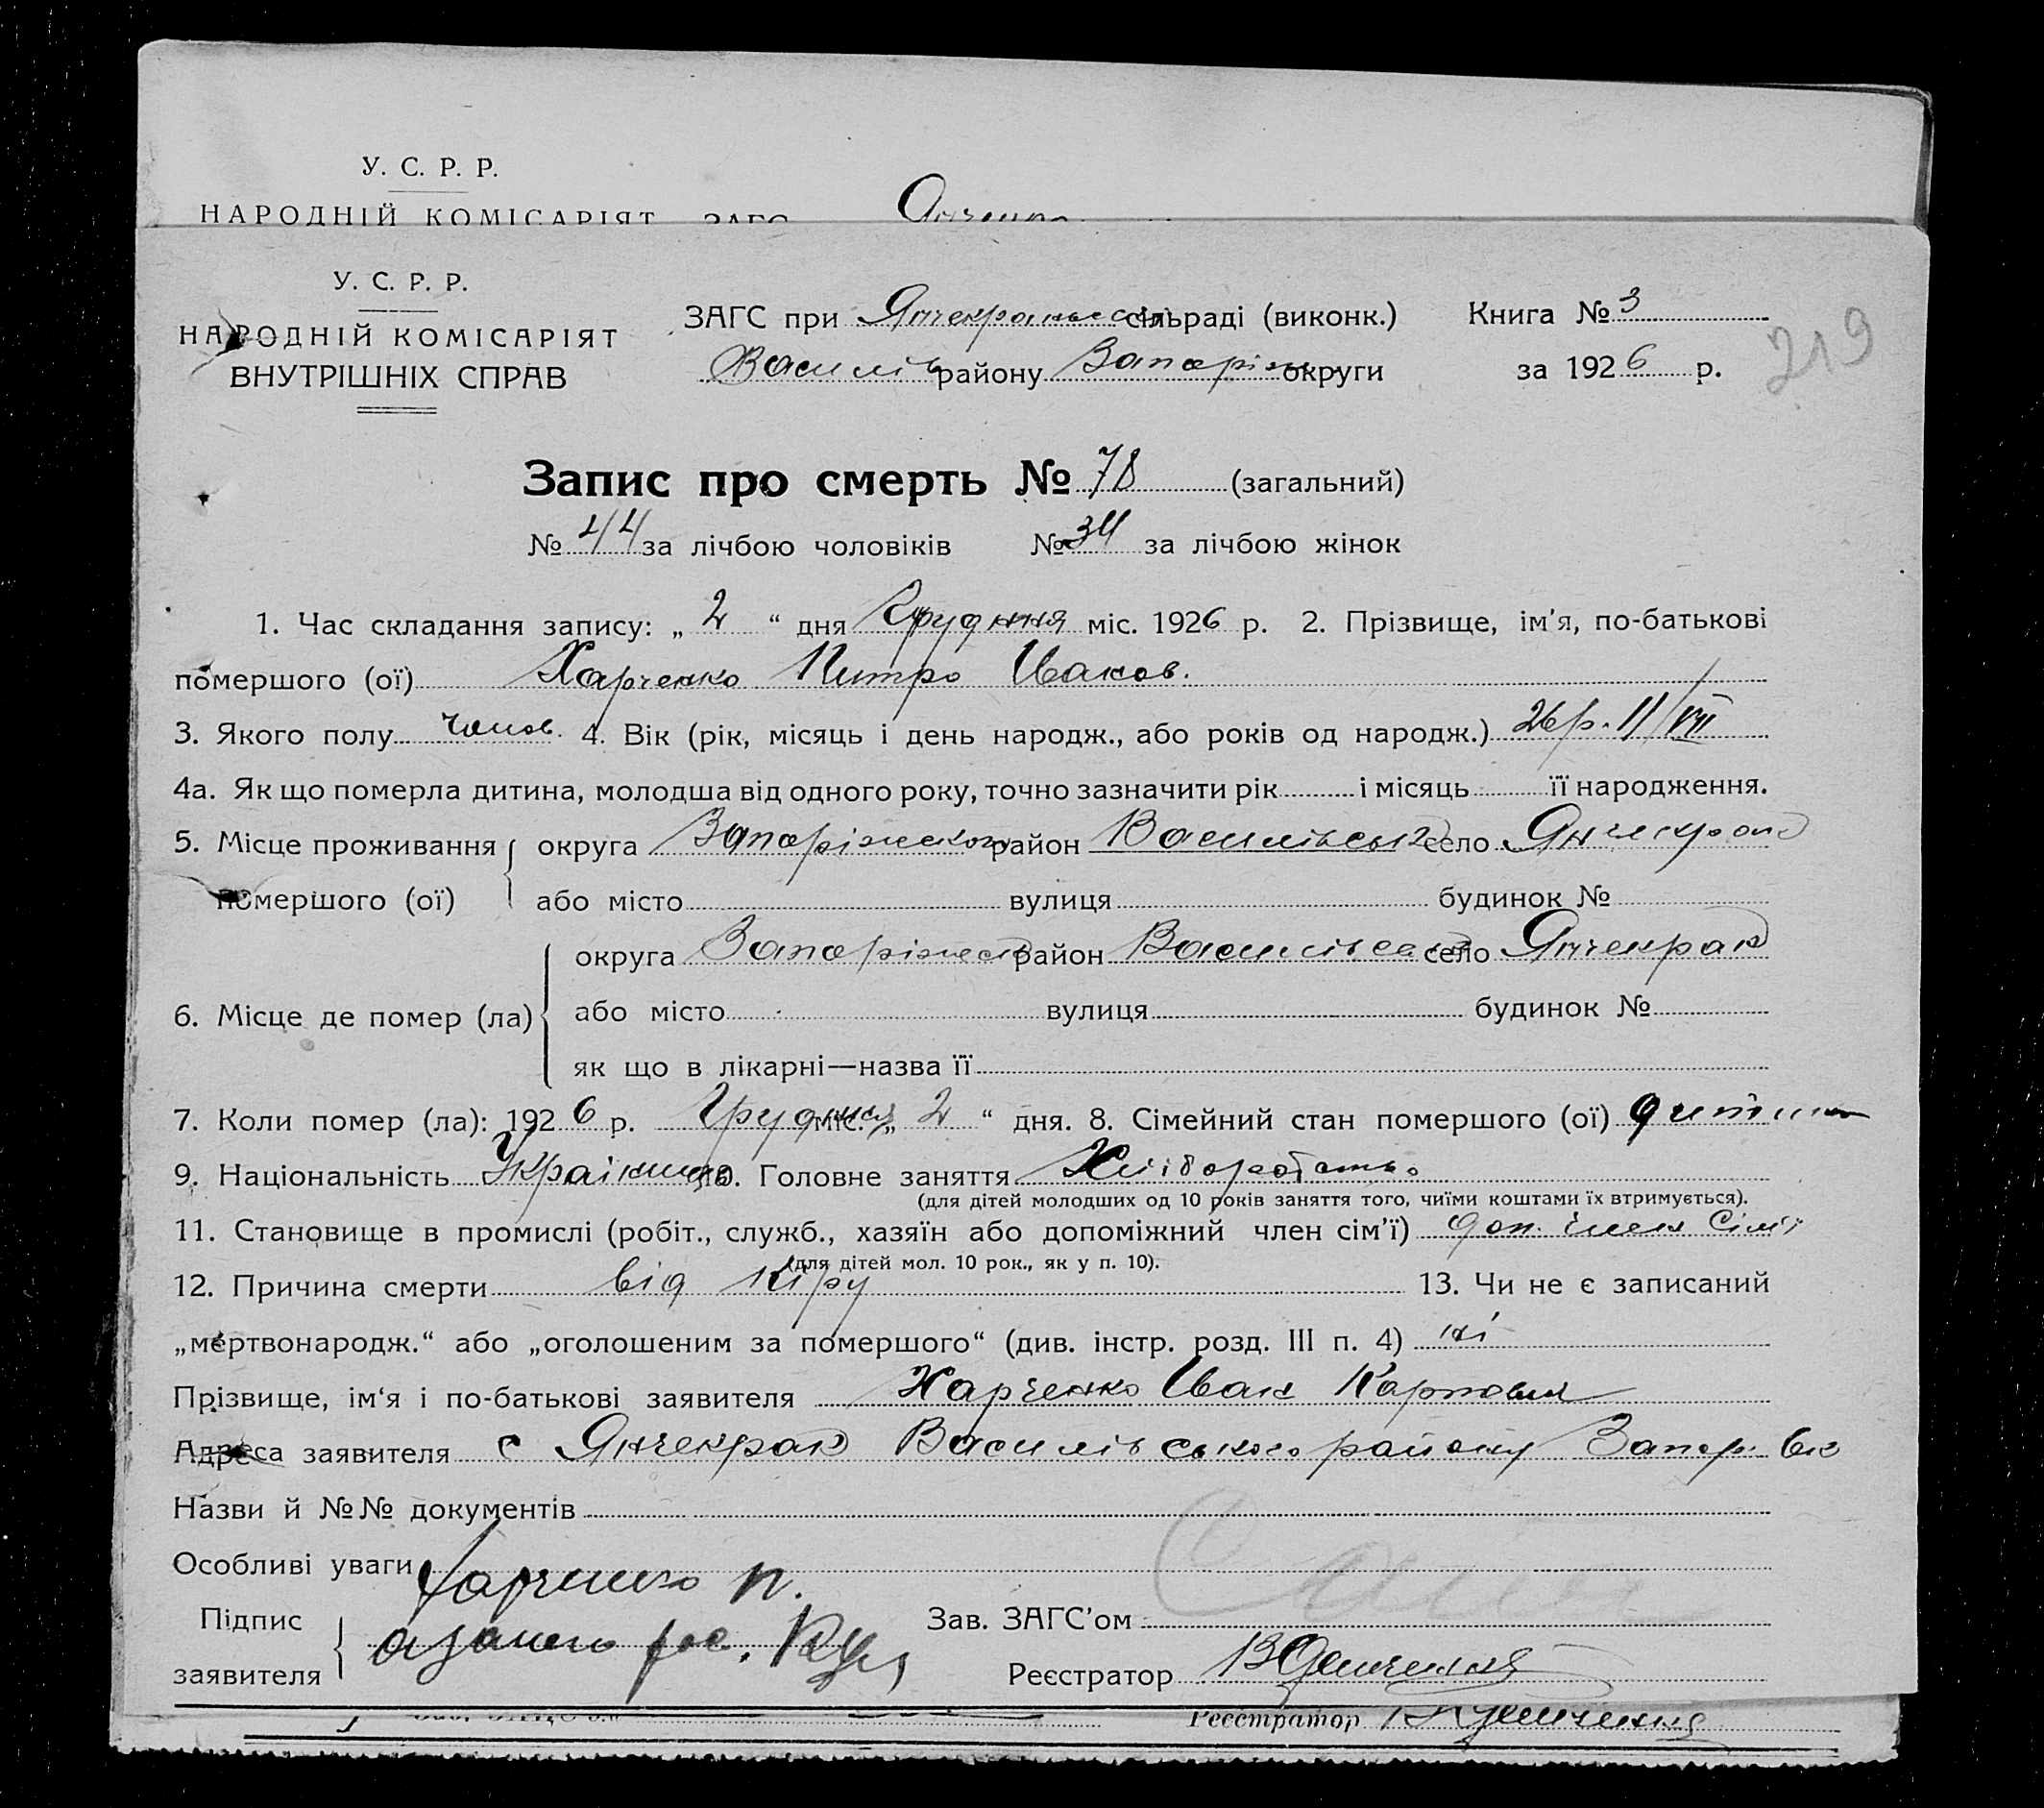 У. С. Р. Р.
НАРОДНІЙ КОМІСАРІЯТ ЗАГС
У. С. Р. Р.
НАРОДНІЙ КОМІСАРІЯТ
ВНУТРІШНІХ СПРАВ
ЗАГС при сільраді (виконк.)
Василів району Запоріж округи
Книга № 3
за 1926 р.
219
Запис про смерть № 78 (загальний)
№ 44 за лічбою чоловіків № 34 за лічбою жінок
1. Час складання запису: „ 2 “ дня Грудння міс. 1926 р. 2. Прізвище, ім'я, по-батькові
помершого (ої) Харченко Питро Іванов.
3. Якого полу чолов. 4. Вік (рік, місяць і день народж., або років од народж.) 26 р. 11/VII
4а. Як що померла дитина, молодша від одного року, точно зазначити рік і місяць її народження.
5. Місце проживання помершого (ої) округа Запоріжского район Васильвськ село Янчекрак
або місто вулиця будинок №
6. Місце де помер (ла) округа Запоріжск район Васильвськ село Янчекрак
або місто вулиця будинок №
як що в лікарні—назва її
7. Коли помер (ла): 1926 р. Грудння міс. „ 2 “ дня. 8. Сімейний стан помершого (ої) дитина
9. Національність Українць 10. Головне заняття Хліборобство
(для дітей молодших од 10 років заняття того, чиїми коштами їх втримується).
11. Становище в промислі (робіт., служб., хазяїн або допоміжний член сім'ї) доп. член Сімї
(для дітей мол. 10 рок., як у п. 10).
12. Причина смерти від кіру 13. Чи не є записаний
„мертвонародж.“ або „оголошеним за помершого“ (див. інстр. розд. III п. 4) ні
Прізвище, ім'я і по-батькові заявителя Харченко Іван Карпович
Адреса заявителя с Янчекрак Василівського району Запор.
Назви й №№ документів
Особливі уваги
Харченко н.
Підпис заявителя
Зав. ЗАГС'ом
Реєстратор
Реєстратор